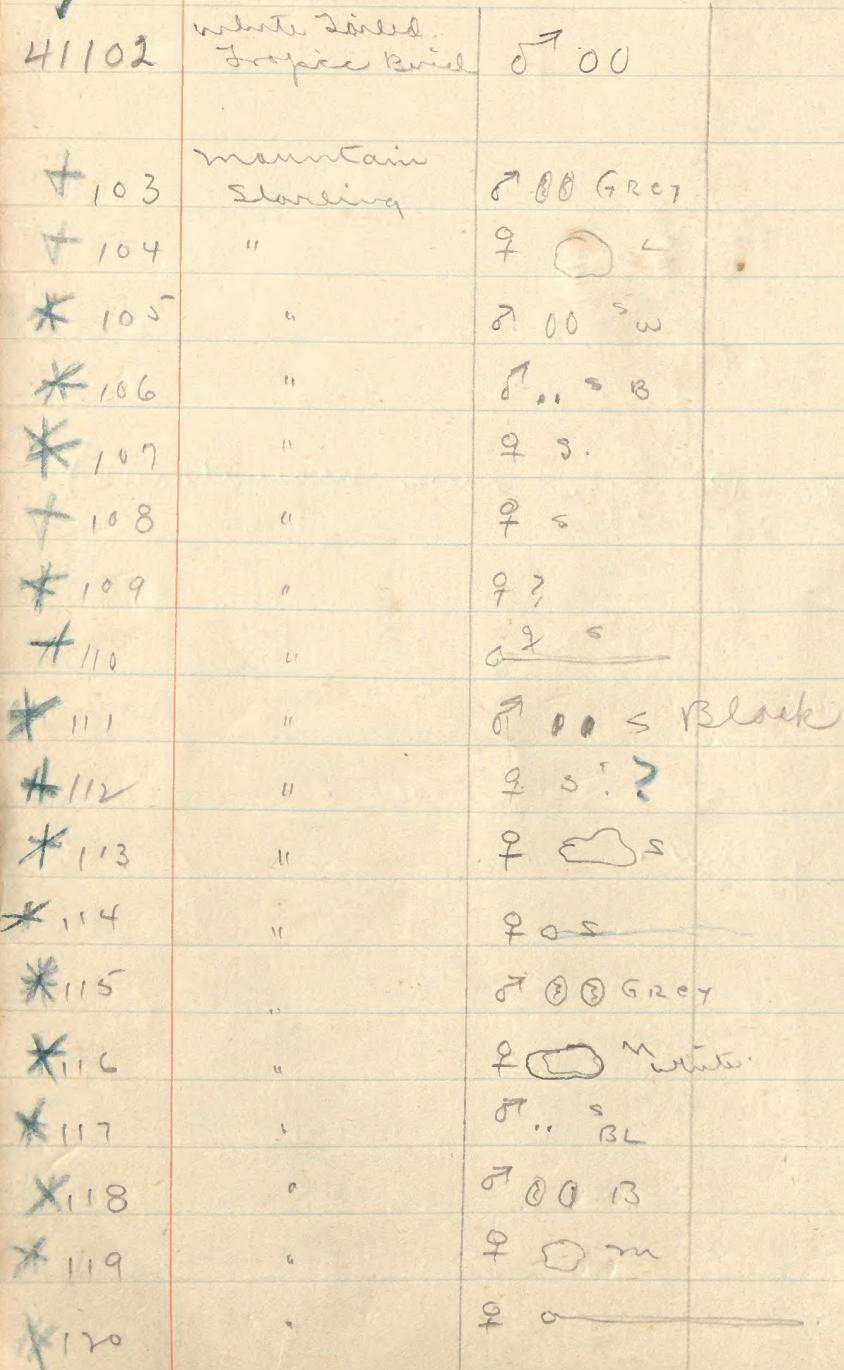 41102 White Tailed
Tropic Bird ♂ 00
+ 103 Mountain
Starling ♂ 00 Grey
+ 104 " ♀ L
* 105 " ♂ 00 s w
* 106 " ♂ .. s B
* 107 " ♀ s.
+ 108 " ♀ s
* 109 " ♀ ?
+ 110 " ♀ s
* 111 " ♂ s Black
# 112 " ♀ s ?
* 113 " ♀ s
* 114 " ♀ o s
* 115 " ♂ Grey
* 116 " ♀ M white
* 117 " ♂ .. s
BL
* 118 " ♂ 00 B
* 119 " ♀ m
* 120 " ♀